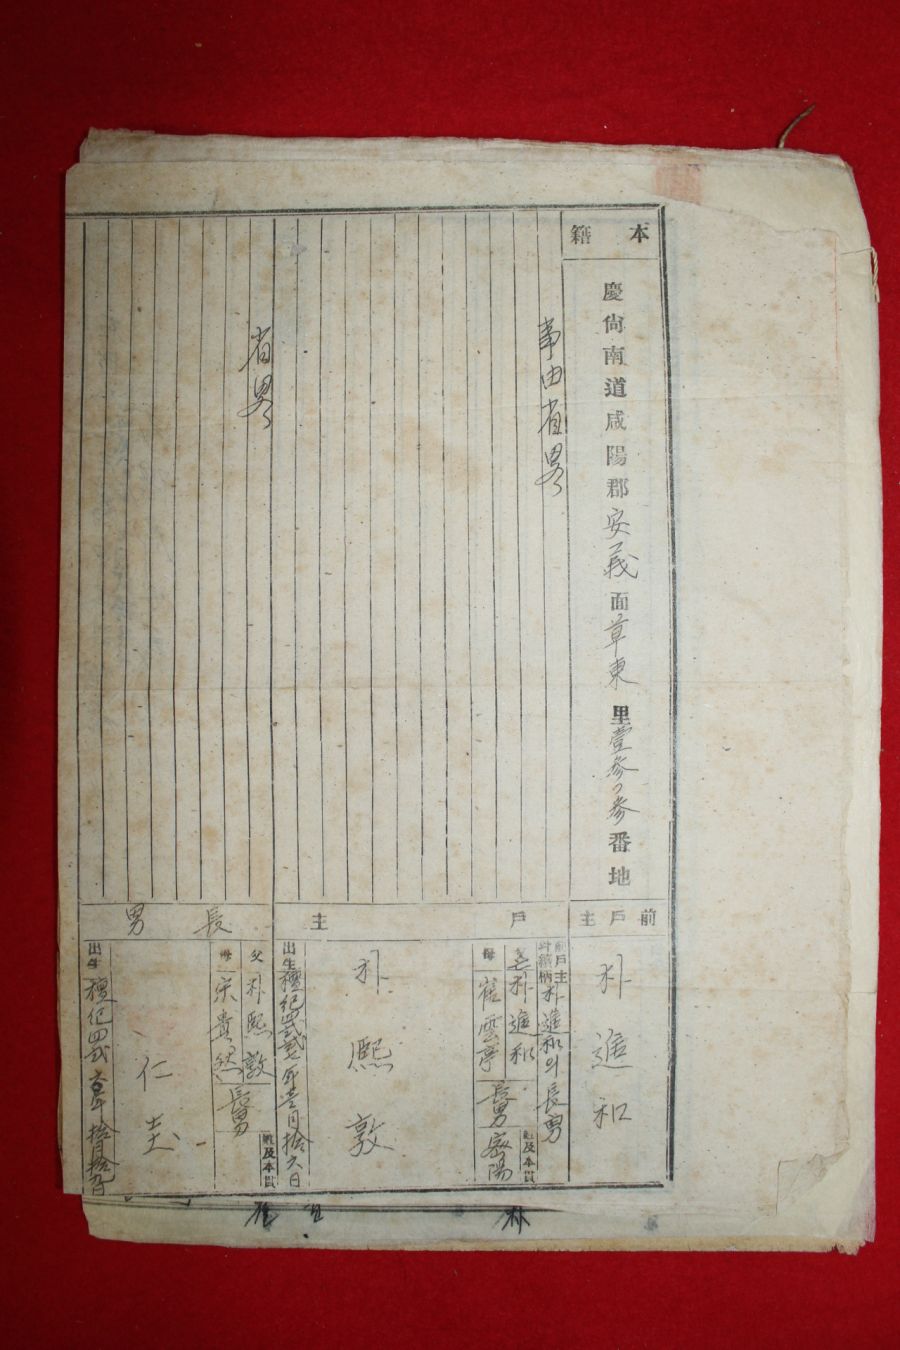 本籍
慶尙南道咸陽郡安義面草東里壹參ノ參番地
前戶主
朴進和
事由省畧
戶主
前戶主
朴進和의長男
父朴進和
母崔雲亭
長男
密陽
姓及本貫
朴熙敦
出生檀紀四貳年壹月拾六日
省畧
長男
父朴熙敦
母宋貴然
長男
姓及本貫
仁圭
出生檀紀四貳
朴